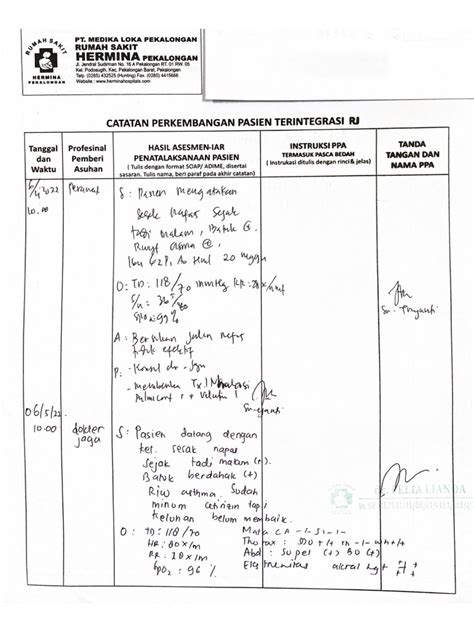 RUMAH SAKIT
HERMINA
PEKALONGAN
PT. MEDIKA LOKA PEKALONGAN
RUMAH SAKIT
HERMINA PEKALONGAN
Jl. Jendral Sudirman No. 16 A Pekalongan RT. 01 RW.
Kel. Podosugih, Kec. Pekalongan Barat, Pekalongan
Telp. (0285) 432525 (Hunting) Fax. (0285) 4415668
Website : www.herminahospitals.com
CATATAN PERKEMBANGAN PASIEN TERINTEGRASI RJ
Tanggal dan Waktu
Profesinal Pemberi Asuhan
HASIL ASESMEN-IAR
PENATALAKSANAAN PASIEN
( Tulis dengan format SOAP/ ADIME, disertai
sasaran. Tulis nama, beri paraf pada akhir catatan)
INSTRUKSI PPA
TERMASUK PASCA BEDAH
( Instruksi ditulis dengan rinci & jelas)
TANDA
TANGAN DAN
NAMA PPA
2022 Perawat
10.00
S : Pasien mengatakan
Sesak Napas Sejak
tadi malam, Batuk
Riwyt asma
G2P1A0 Hml 20 mggu
O: TD: 118/70 mmHg RR: 28x/mnt
SpO2 99%
A : Bersihan jalan napas
tidak efektif
P. - Konsul dr. Jaga
06/5/22
10.00
dokter
jaga
S : Pasien datang dengan
kel. sesak napas
sejak tadi malam (+).
Batuk berdahak (+)
Riw asthma. Sudah
minum cetirizin tapi
keluhan belum membaik.
O : TD : 118/70
HR : 80x/m
RR : 28x/m
SpO2 : 96 %
Mata CA -/- SI -/-
Thorax : SDV +/+ rh -/- wh +/+
Abd : supel (+) BU (+)
Ekstremitas akral hgt +/+